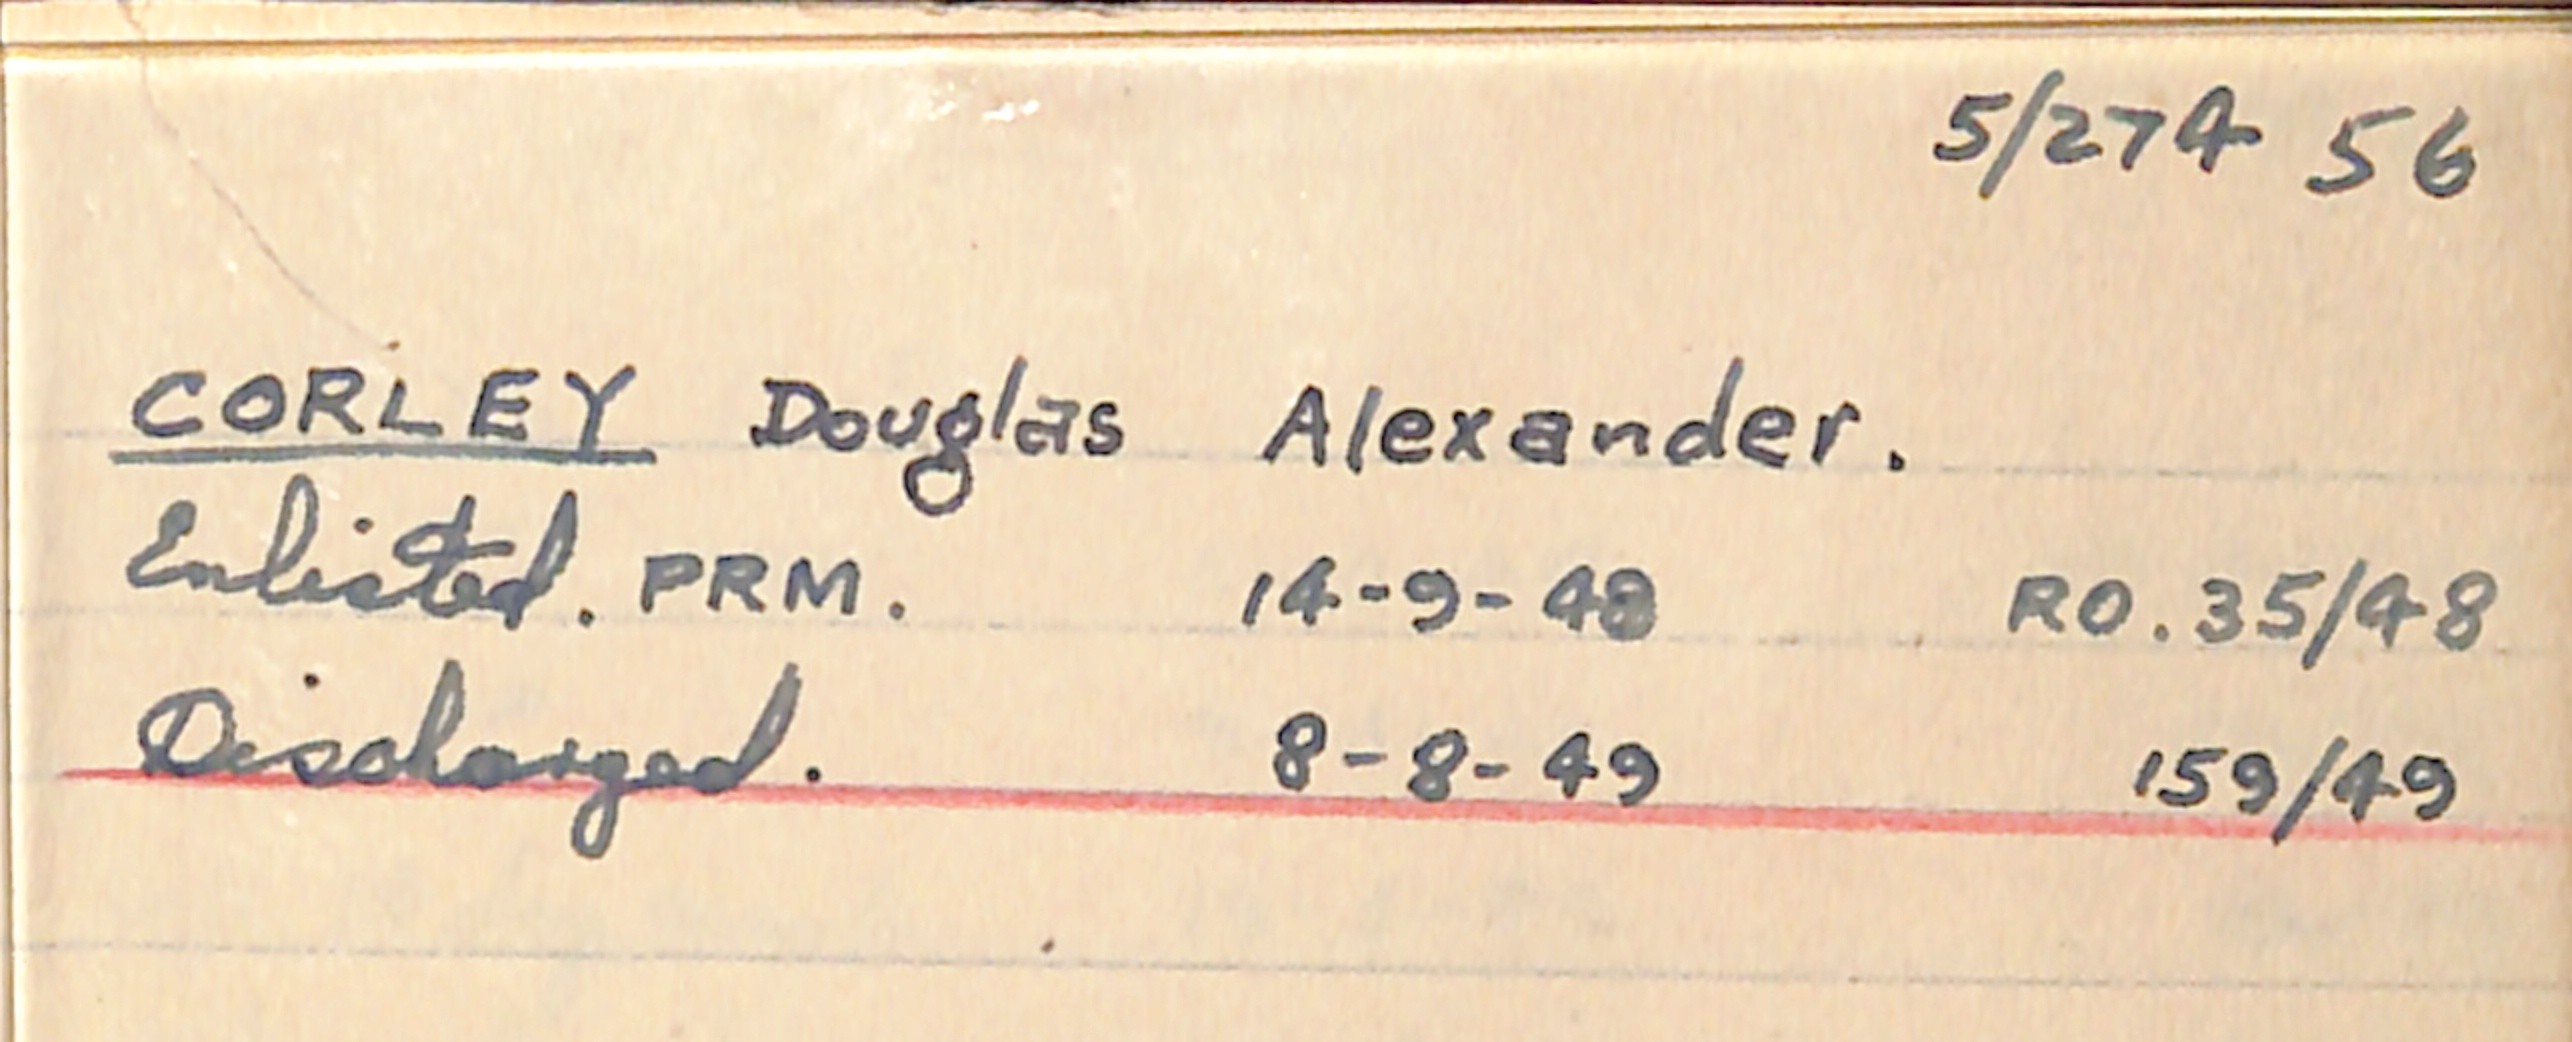 5/274 56
CORLEY Douglas Alexander.
Enlisted. PRM. 14-9-48 RO. 35/48
Discharged. 8-8-49 159/49